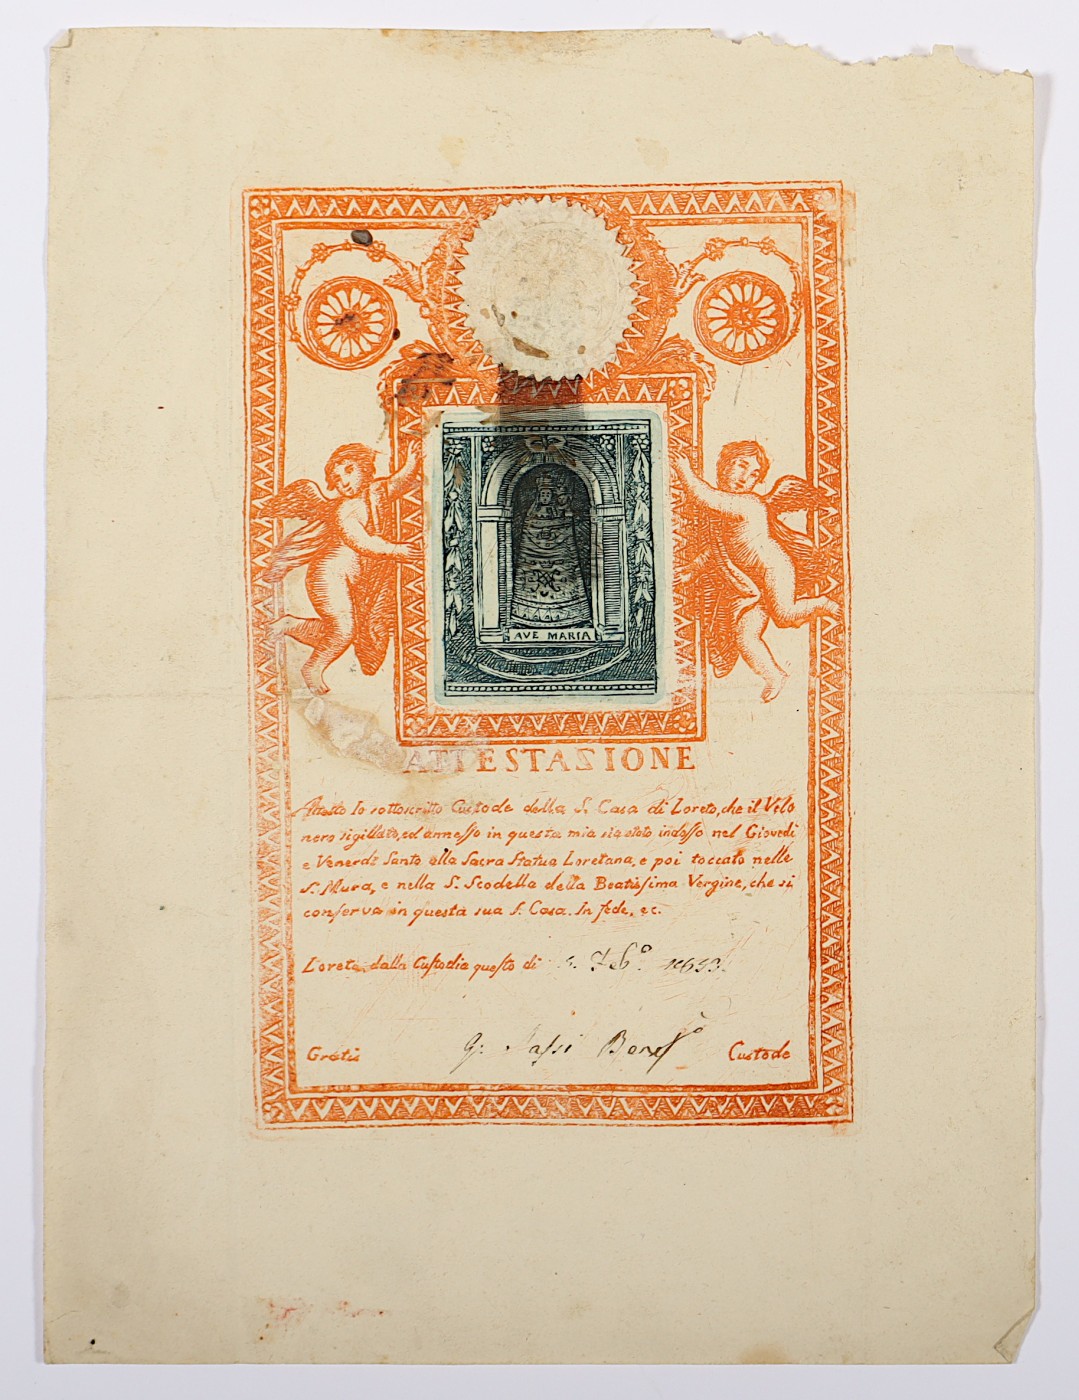 AVE MARIA
ATTESTAZIONE
Attesto Io sottoscritto Custode della S. Casa di Loreto, che il Velo
nero sigillato, ed annesso in questa mia sia stato indosso nel Giovedì
e Venerdì Santo alla Sacra Statua Loretana, e poi toccato nelle
S. Mura, e nella S. Scodella della Beatissima Vergine, che si
conserva in questa sua S. Casa. In fede, ec.
Loreto dalla Custodia questo dì Feb.º
Gratis G: Custode